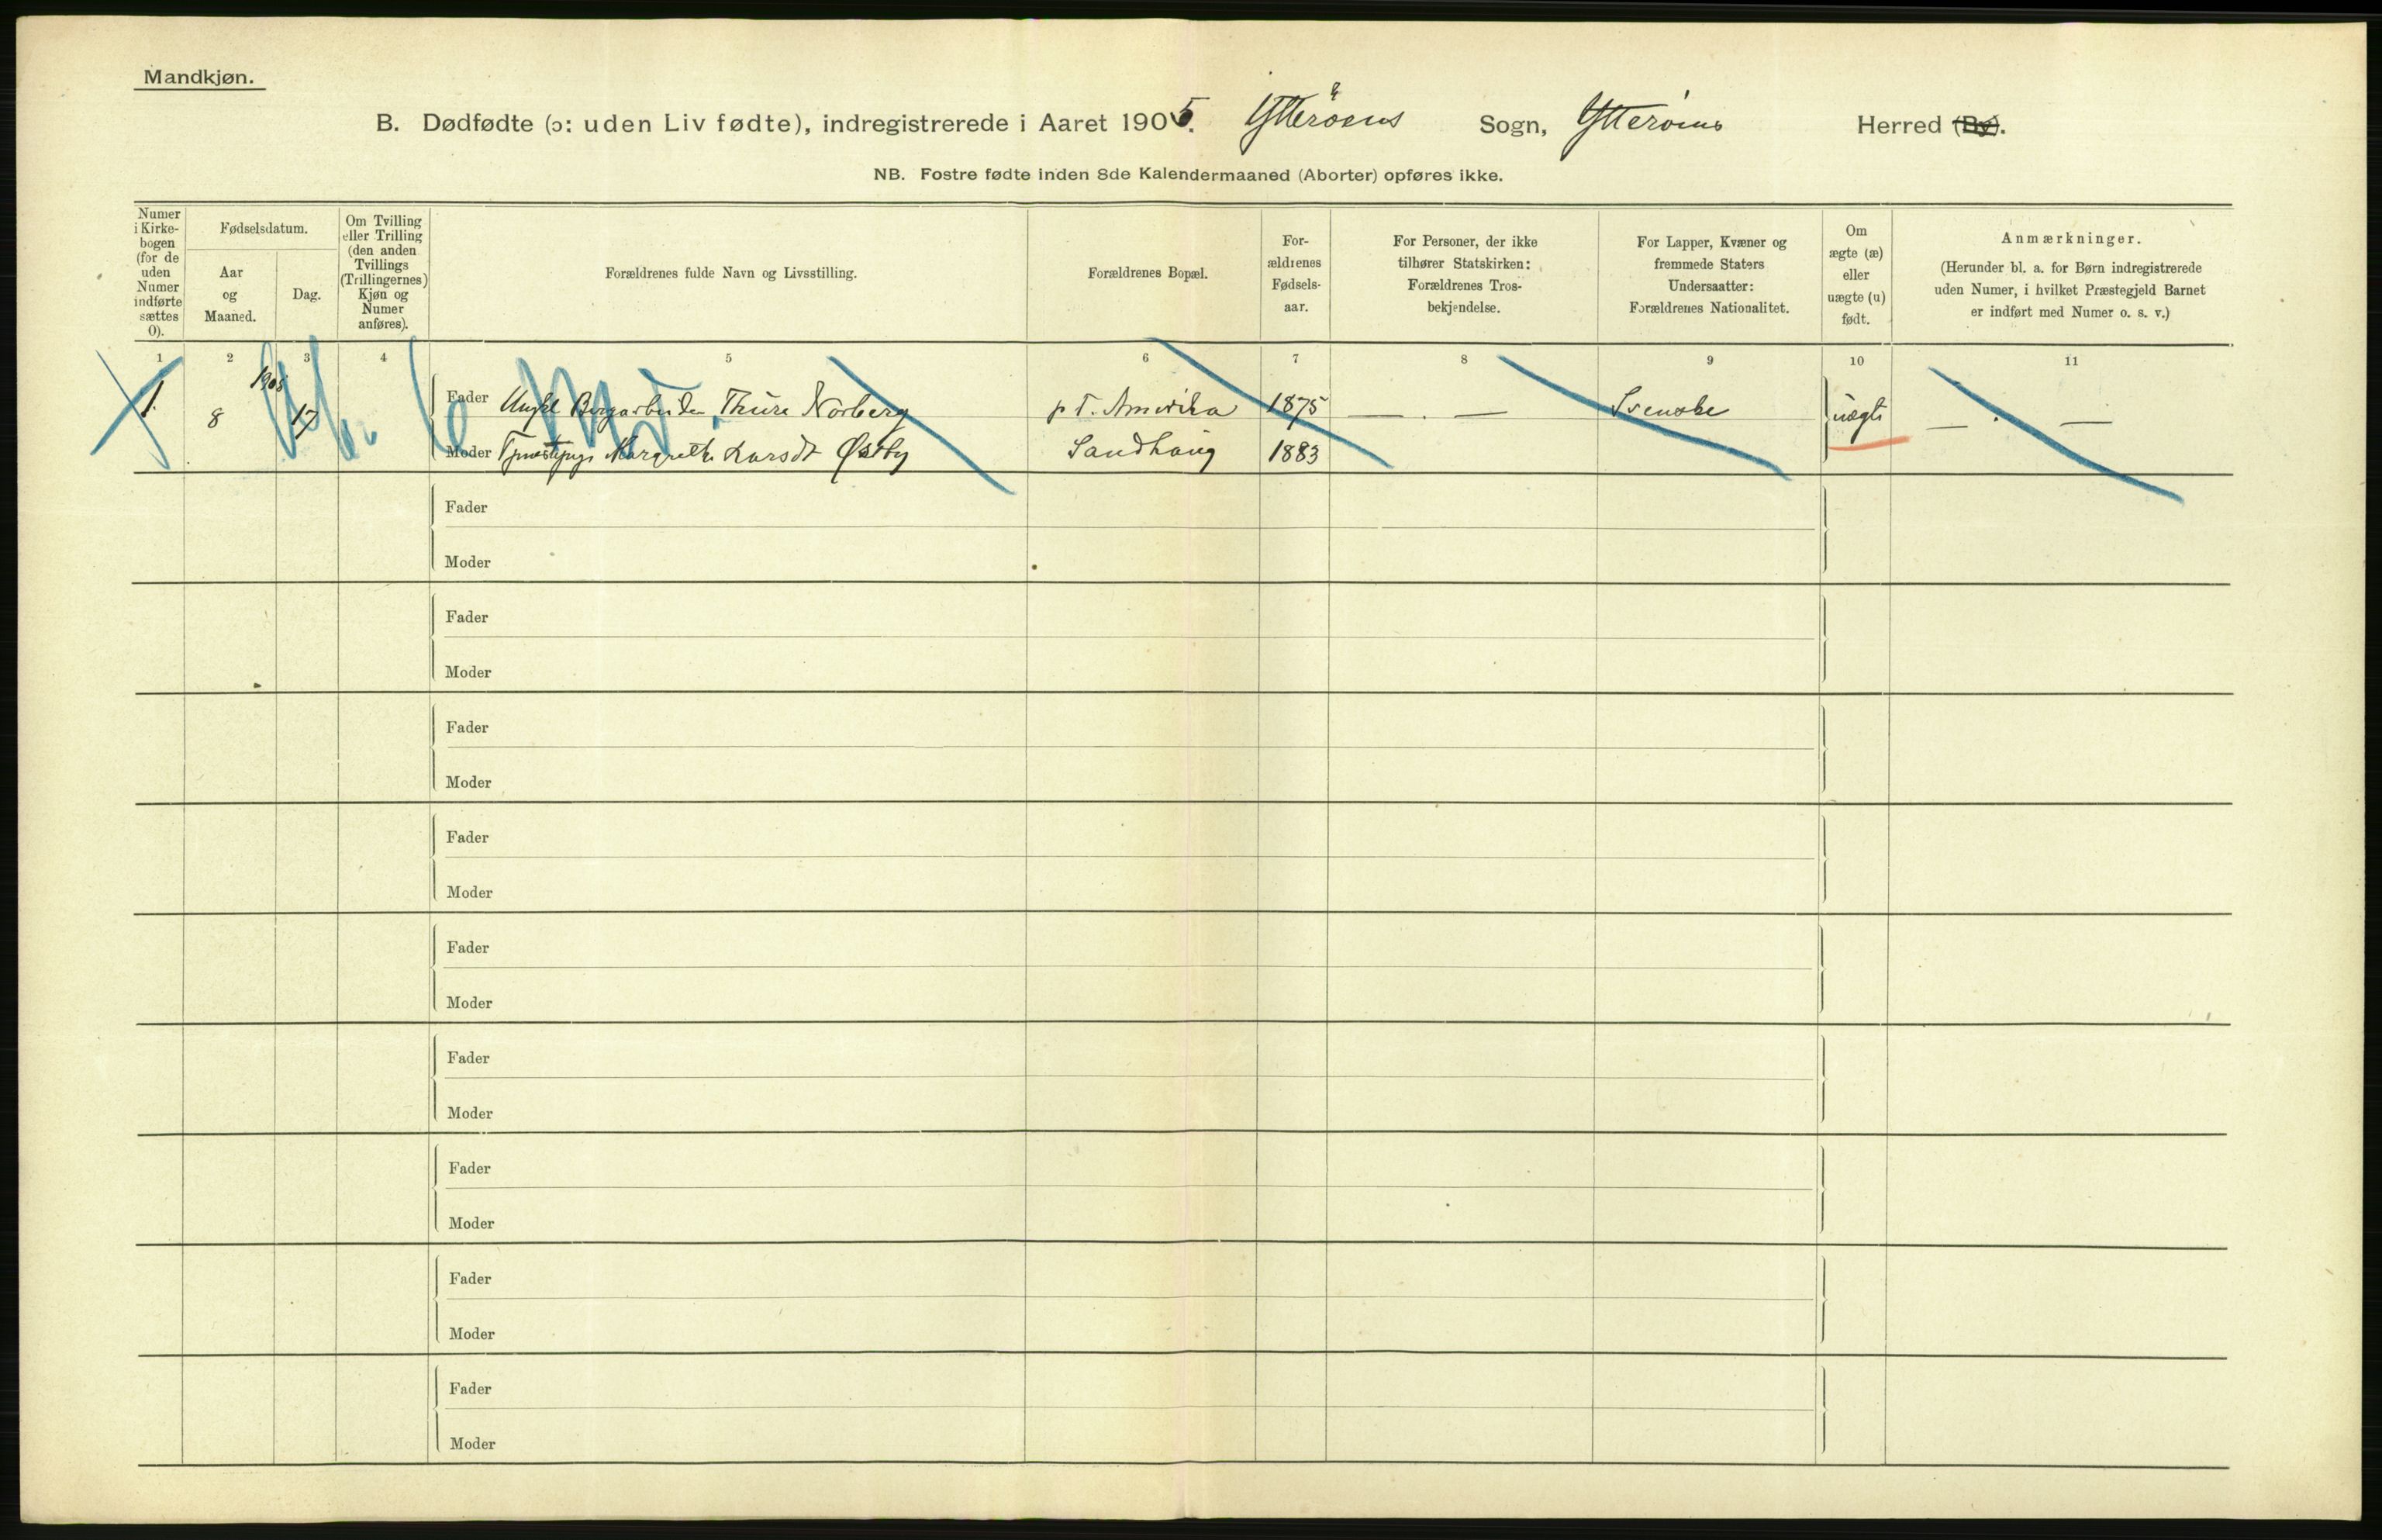 Mandkjøn.
B. Dødfødte (ɔ: uden Liv fødte), indregistrerede i Aaret 1905. Ytterøens Sogn, Ytterøens Herred (By).
NB. Fostre fødte inden 8de Kalendermaaned (Aborter) opføres ikke.
Numer i Kirke-bogen (for de uden Numer indførte sættes 0).
Fødselsdatum.
Aar og Maaned.
Dag.
Om Tvilling eller Trilling (den anden Tvillings (Trillingernes) Kjøn og Numer anføres).
Forældrenes fulde Navn og Livsstilling.
Forældrenes Bopæl.
For-ældrenes Fødsels-aar.
For Personer, der ikke tilhører Statskirken: Forældrenes Tros-bekjendelse.
For Lapper, Kvæner og fremmede Staters Undersaatter: Forældrenes Nationalitet.
Om ægte (æ) eller uægte (u) født.
Anmærkninger.
(Herunder bl. a. for Børn indregistrerede uden Numer, i hvilket Præstegjeld Barnet er indført med Numer o. s. v.)
1 2 3 4 5 6 7 8 9 10 11
1905
1. 8 17 Fader Ungkl Bergarbeider Thure Norberg p t. Amerika 1875 — . — Svenske uægte — . —
Moder Margrethe Larsdt Østby Sandhaug 1883
Fader
Moder
Fader
Moder
Fader
Moder
Fader
Moder
Fader
Moder
Fader
Moder
Fader
Moder
Fader
Moder
Fader
Moder